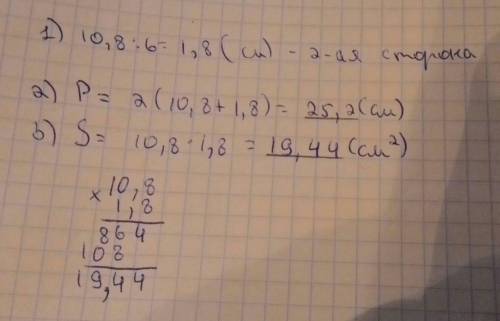 1) 10,8 : 6 = 1,8 (см) - 2-ая сторона
2) P = 2(10,8 + 1,8) = 25,2 (см)
3) S = 10,8 · 1,8 = 19,44 (см²)
× 10,8
1,8
864
108
19,44